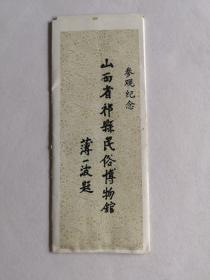 参观纪念
山西省祁縣民俗博物館
薄一波題